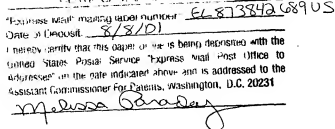 "Express Mail" mailing label number EL873842689US
Date of Deposit 8/8/01
I hereby certify that this paper or fee is being deposited with the
United States Postal Service "Express Mail Post Office to
Addressee" on the date indicated above and is addressed to the
Assistant Commissioner For Patents, Washington, D.C. 20231
Melissa Garaday